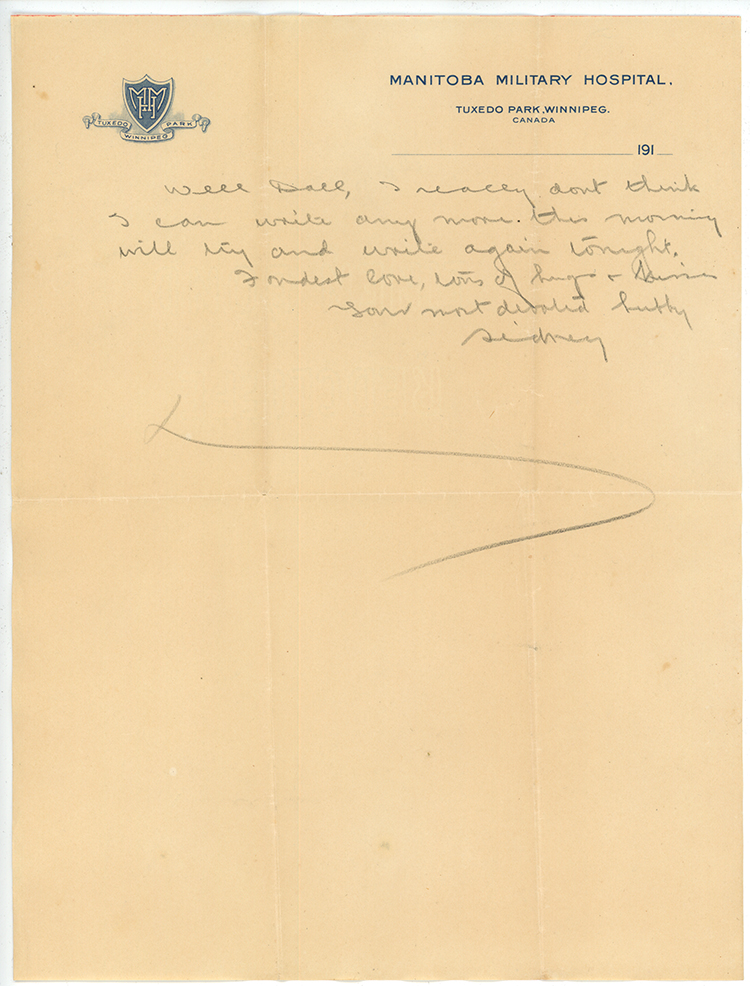 MHM
TUXEDO PARK
WINNIPEG
MANITOBA MILITARY HOSPITAL.
TUXEDO PARK, WINNIPEG.
CANADA
191
Well Doll, I really dont think
I can write any more. this morning
will try and write again tonight.
Fondest love, lots of hugs + kisses
Your most devoted hubby
Sidney